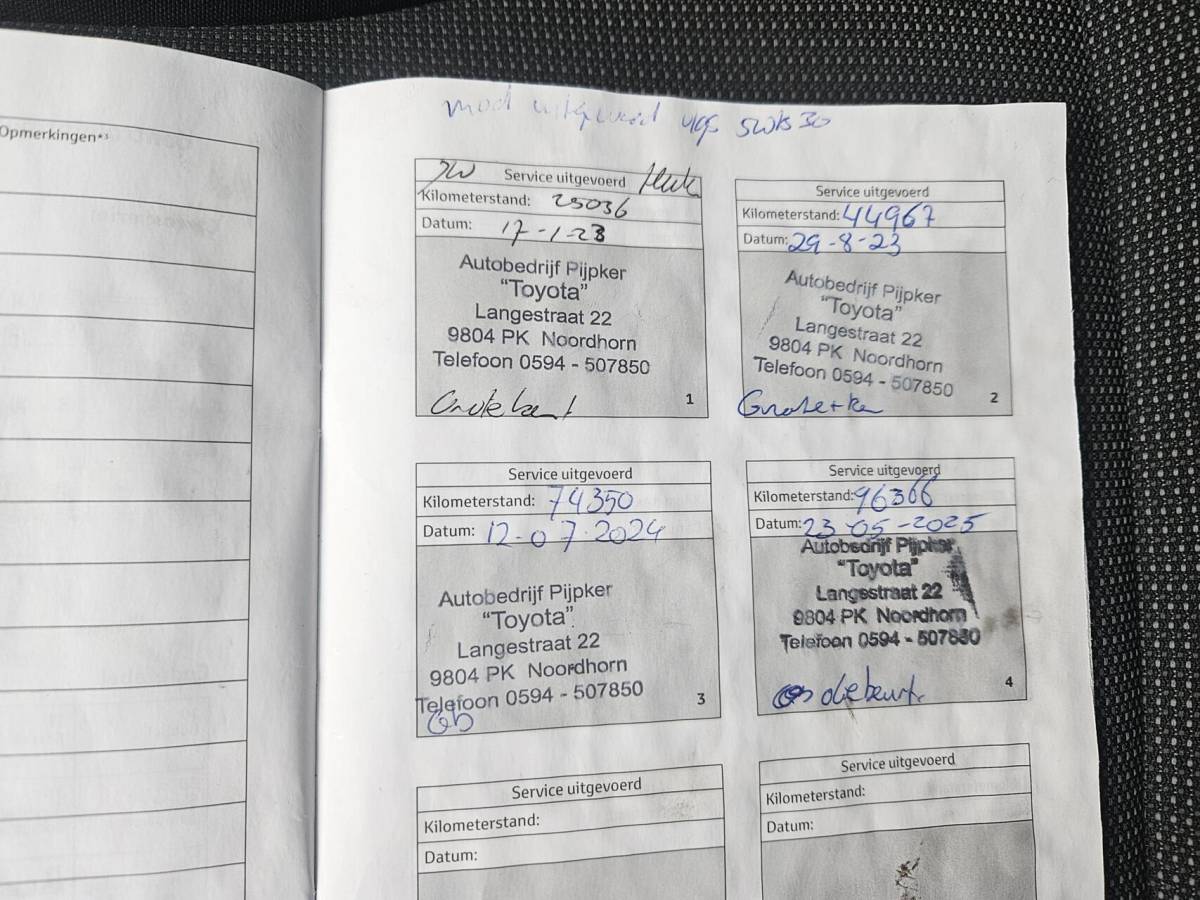 Opmerkingen*³
mod uitgevoerd vlgs SWS 30
Service uitgevoerd
Kilometerstand: 25036
Datum: 17-1-23
Autobedrijf Pijpker
"Toyota"
Langestraat 22
9804 PK Noordhorn
Telefoon 0594 - 507850
1
Service uitgevoerd
Kilometerstand: 44967
Datum: 29-8-23
Autobedrijf Pijpker
"Toyota"
Langestraat 22
9804 PK Noordhorn
Telefoon 0594 - 507850
2
Service uitgevoerd
Kilometerstand: 74350
Datum: 12-07-2024
Autobedrijf Pijpker
"Toyota"
Langestraat 22
9804 PK Noordhorn
Telefoon 0594 - 507850
3
Service uitgevoerd
Kilometerstand: 96366
Datum: 23-05-2025
Autobedrijf Pijpker
"Toyota"
Langestraat 22
9804 PK Noordhorn
Telefoon 0594 - 507850
4
Service uitgevoerd
Kilometerstand:
Datum:
Service uitgevoerd
Kilometerstand:
Datum: